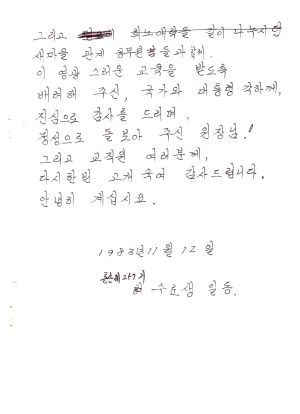 그리고 희노애락을 같이 나누시던
새마을 관계 공무원들과 함께.
이 영광 스러운 교육을 받도록
배려해 주신, 국가와 대통령 각하께,
진심으로 감사를 드리며,
정성으로 돌보아 주신 원장님!
그리고 교직원 여러분께,
다시한번 고개숙여 감사드립니다.
안녕히 계십시요.
1983년 11월 12일
수료생 일동.